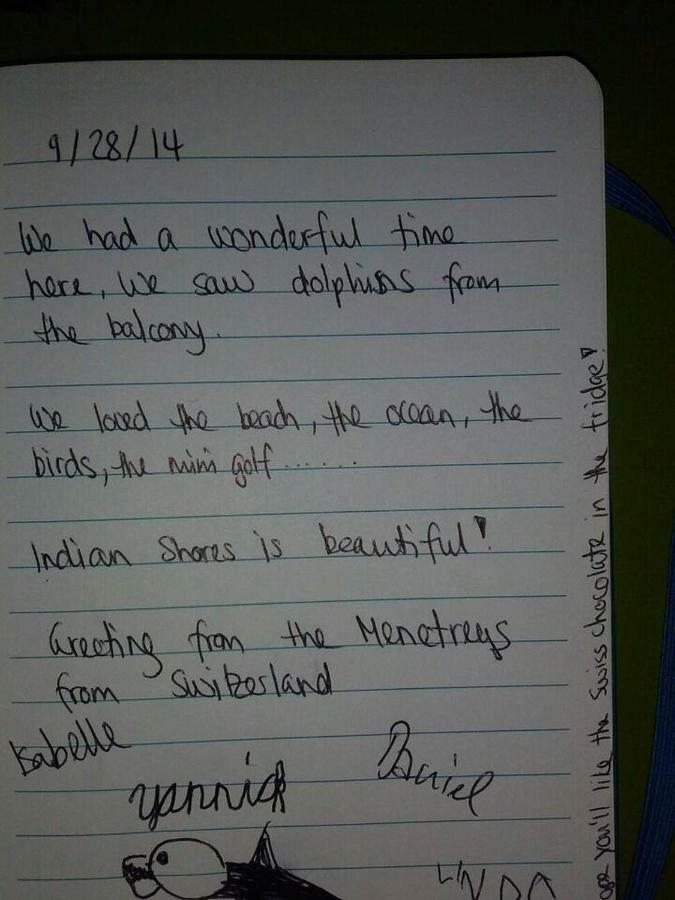 9/28/14
We had a wonderful time
here, We saw dolphins from
the balcony.
We loved the beach, the ocean, the
birds, the mini golf ......
Indian Shores is beautiful!
Greeting from the Menetreys
from Switzerland
Isabelle
Yannick
Daniel
LINDA
you'll like the Swiss chocolate in the fridge!